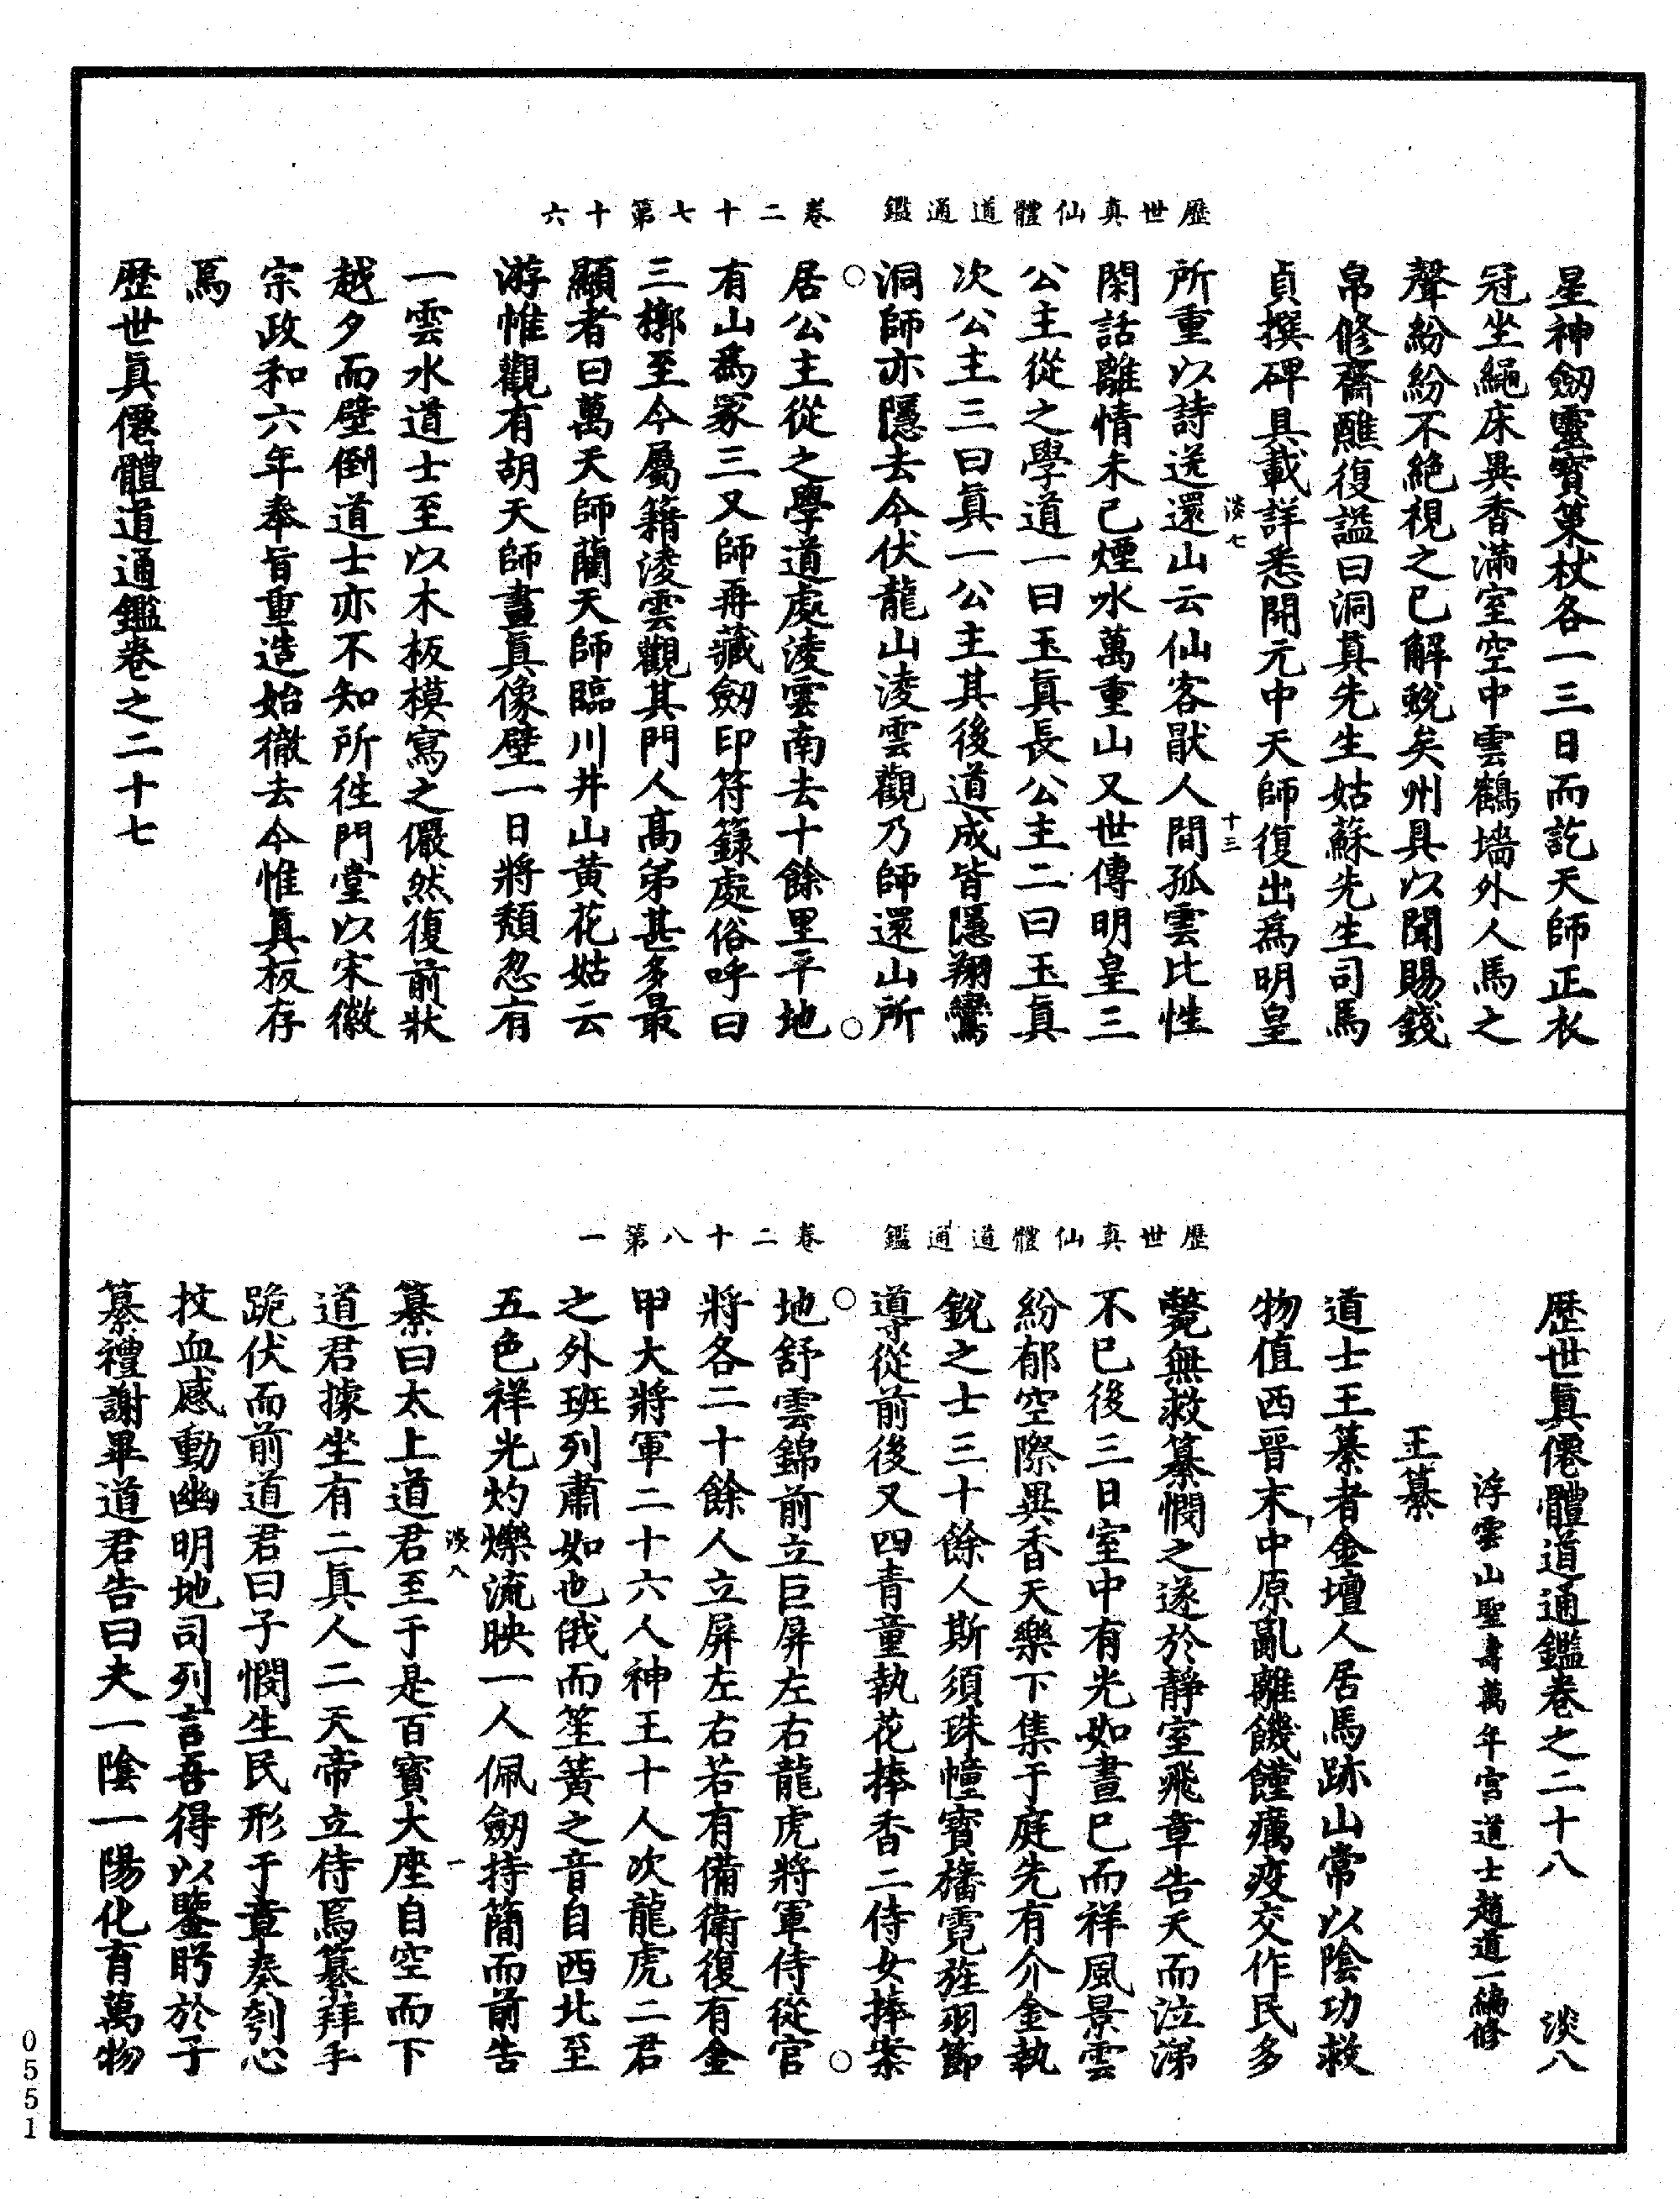 歷世真仙體道通鑑　卷二十七第十六
星神劒靈寳策杖各一三日而訖天師正衣
冠坐繩床異香滿室空中雲鶴墻外人馬之
聲紛紛不絶視之已解蛻矣州具以聞賜錢
帛修齋醮復謚曰洞真先生姑蘇先生司馬
貞撰碑具載詳悉開元中天師復出爲明皇
淡七　十三
所重以詩送還山云仙客厭人間孤雲比性
閑話離情未已煙水萬重山又世傳明皇三
公主從之學道一曰玉眞長公主二曰玉眞
次公主三曰眞一公主其後道成皆隱翔鸞
洞師亦隱去今伏龍山淩雲觀乃師還山所
居公主從之學道處淩雲南去十餘里平地
有山爲冢三又師再藏劒印符籙處俗呼曰
三槨至今屬籍淩雲觀其門人髙弟甚多最
顯者曰萬天師藺天師臨川井山黄花姑云
游帷觀有胡天師畫眞像壁一日將頽忽有
一雲水道士至以木板模寫之儼然復前狀
越夕而壁倒道士亦不知所徃門堂以宋徽
宗政和六年奉旨重造始徹去今惟眞板存
焉
歷世眞僊體道通鑑卷之二十七
歷世真仙體道通鑑　卷二十八第一
歷世眞僊體道通鑑卷之二十八　淡八
浮雲山聖壽萬年宫道士趙道一編修
王纂
道士王纂者金壇人居馬跡山常以陰功救
物值西晉末中原亂離饑饉癘疫交作民多
斃無救纂憫之遂於靜室飛章告天而泣涕
不已後三日室中有光如晝已而祥風景雲
紛郁空際異香天樂下集于庭先有介金執
鋭之士三十餘人斯須珠幢寳旛霓旌羽節
導從前後又四青童執花捧香二侍女捧案
地舒雲錦前立巨屏左右龍虎將軍侍從官
將各二十餘人立屏左右若有備衛復有金
甲大將軍二十六人神王十人次龍虎二君
之外班列肅如也俄而笙簧之音自西北至
五色祥光灼爍流映一人佩劒持簡而前告
淡八　一
纂曰太上道君至于是百寳大座自空而下
道君據坐有二眞人二天帝立侍焉纂拜手
跪伏而前道君曰子憫生民形于章奏刳心
抆血感動幽明地司列言吾得以鑒盻於子
纂禮謝畢道君告曰夫一陰一陽化育萬物
0551